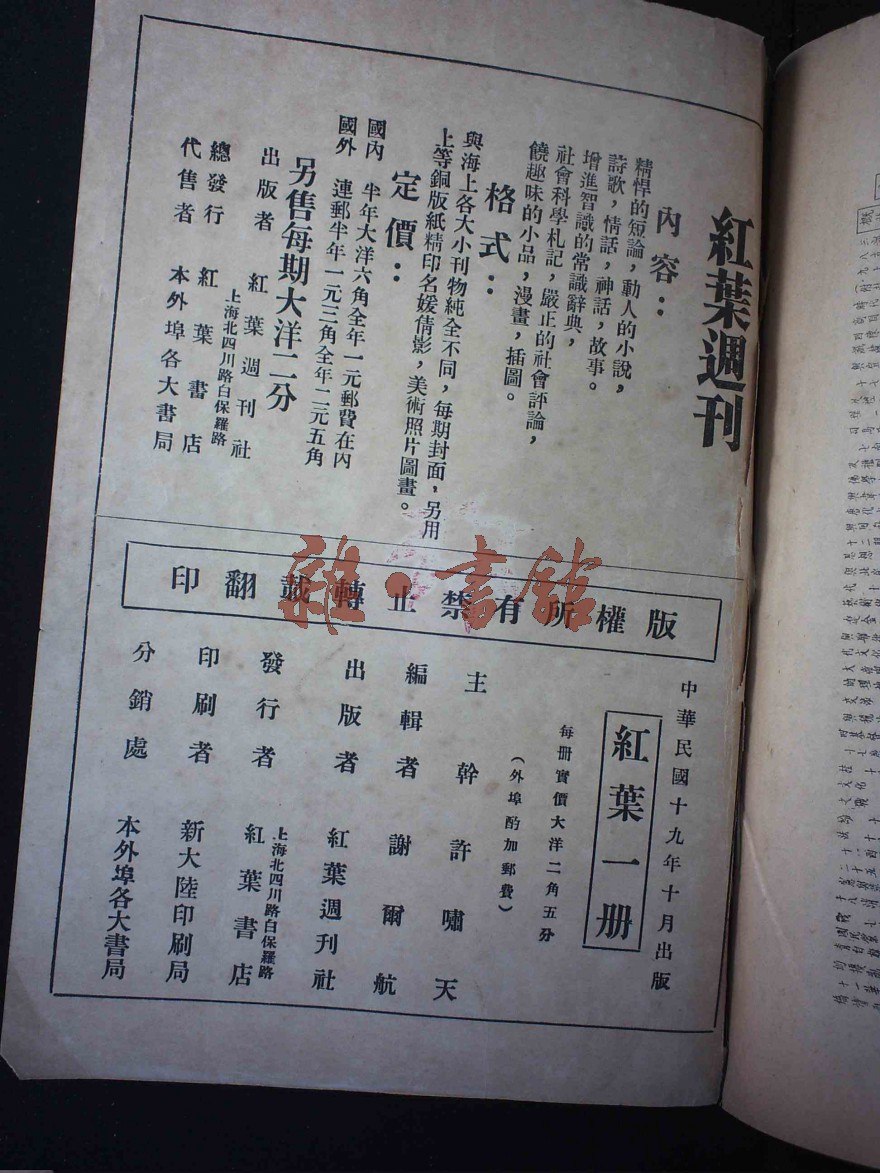 紅葉週刊
內容：
精悍的短論，動人的小說，
詩歌，情話，神話，故事。
增進智識的常識辭典，
社會科學札記，嚴正的社會評論，
饒趣味的小品，漫畫，插圖。
格式：
與海上各大小刊物純全不同，每期封面，另用
上等銅版紙精印名媛倩影，美術照片圖畫。
定價：
國內　半年大洋六角全年一元郵費在內
國外　連郵半年一元三角全年二元五角
另售每期大洋二分
出版者　紅葉週刊社
上海北四川路白保羅路
總發行　紅葉書店
代售者　本外埠各大書局
版權所有禁止轉載翻印
中華民國十九年十月出版
紅葉一冊
每冊實價大洋二角五分
（外埠酌加郵費）
主幹許嘯天
編輯者　謝爾航
出版者　紅葉週刊社
上海北四川路白保羅路
發行者　紅葉書店
印刷者　新大陸印刷局
分銷處　本外埠各大書局
雜·書館